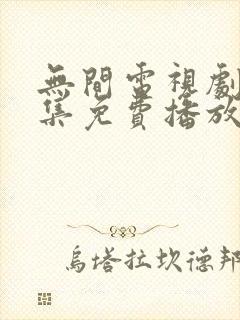 無間電視劇
集免費播放
烏塔拉坎德邦